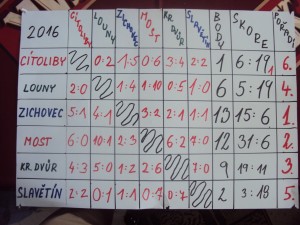 2016 CÍTOLIBY LOUNY ZICHOVEC MOST KR. DVŮR SLAVĚTÍN BODY SKORE POŘADÍ
CÍTOLIBY 0:2 1:5 0:6 3:4 2:2 1 6:19 6.
LOUNY 2:0 1:4 1:10 0:5 1:0 6 5:19 4.
ZICHOVEC 5:1 4:1 3:2 2:1 1:1 13 15:6 1.
MOST 6:0 10:1 2:3 6:2 7:0 12 31:6 2.
KR. DVŮR 4:3 5:0 1:2 2:6 7:0 9 19:11 3.
SLAVĚTÍN 2:2 0:1 1:1 0:7 0:7 2 3:18 5.